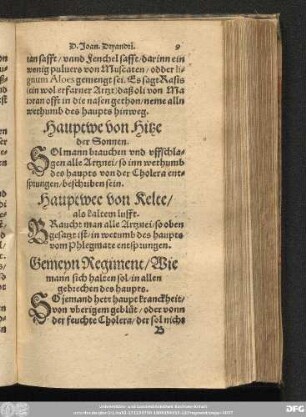 D. Joan. Dryandri. 9
tan safft/ vand Fenchel saffe/ dar inn ein
wenig puluers von Muscaten/ odder li-
gnum Aloes gemengt sei. Es sagt Rasis
ein wol erfarner Artzt/ daß oli von Ma
ioran offt in die nasen gethon/ neme alln
wethumb des haupts hinweg.
Hauptwe von Hitze
der Sonnen.
SOl mann brauchen vnd vffschla-
gen alle Artznei/ so inn wethumb
des haupts von der Cholera ent-
sprungen/ beschriben sein.
Hauptwee von Kelte/
als kaltem lufft.
BRaucht man alle Artznei/ so oben
gesagt ist/ in wetumb des haupts
vom Phlegmate entsprungen.
Gemeyn Regiment/ Wie
mann sich halten sol/ in allen
gebrechen des haupts.
SO jemand hett haupt kranckheit/
von vberigem geblüt/ oder vonn
der feuchte Cholera/ der sol nicht
B